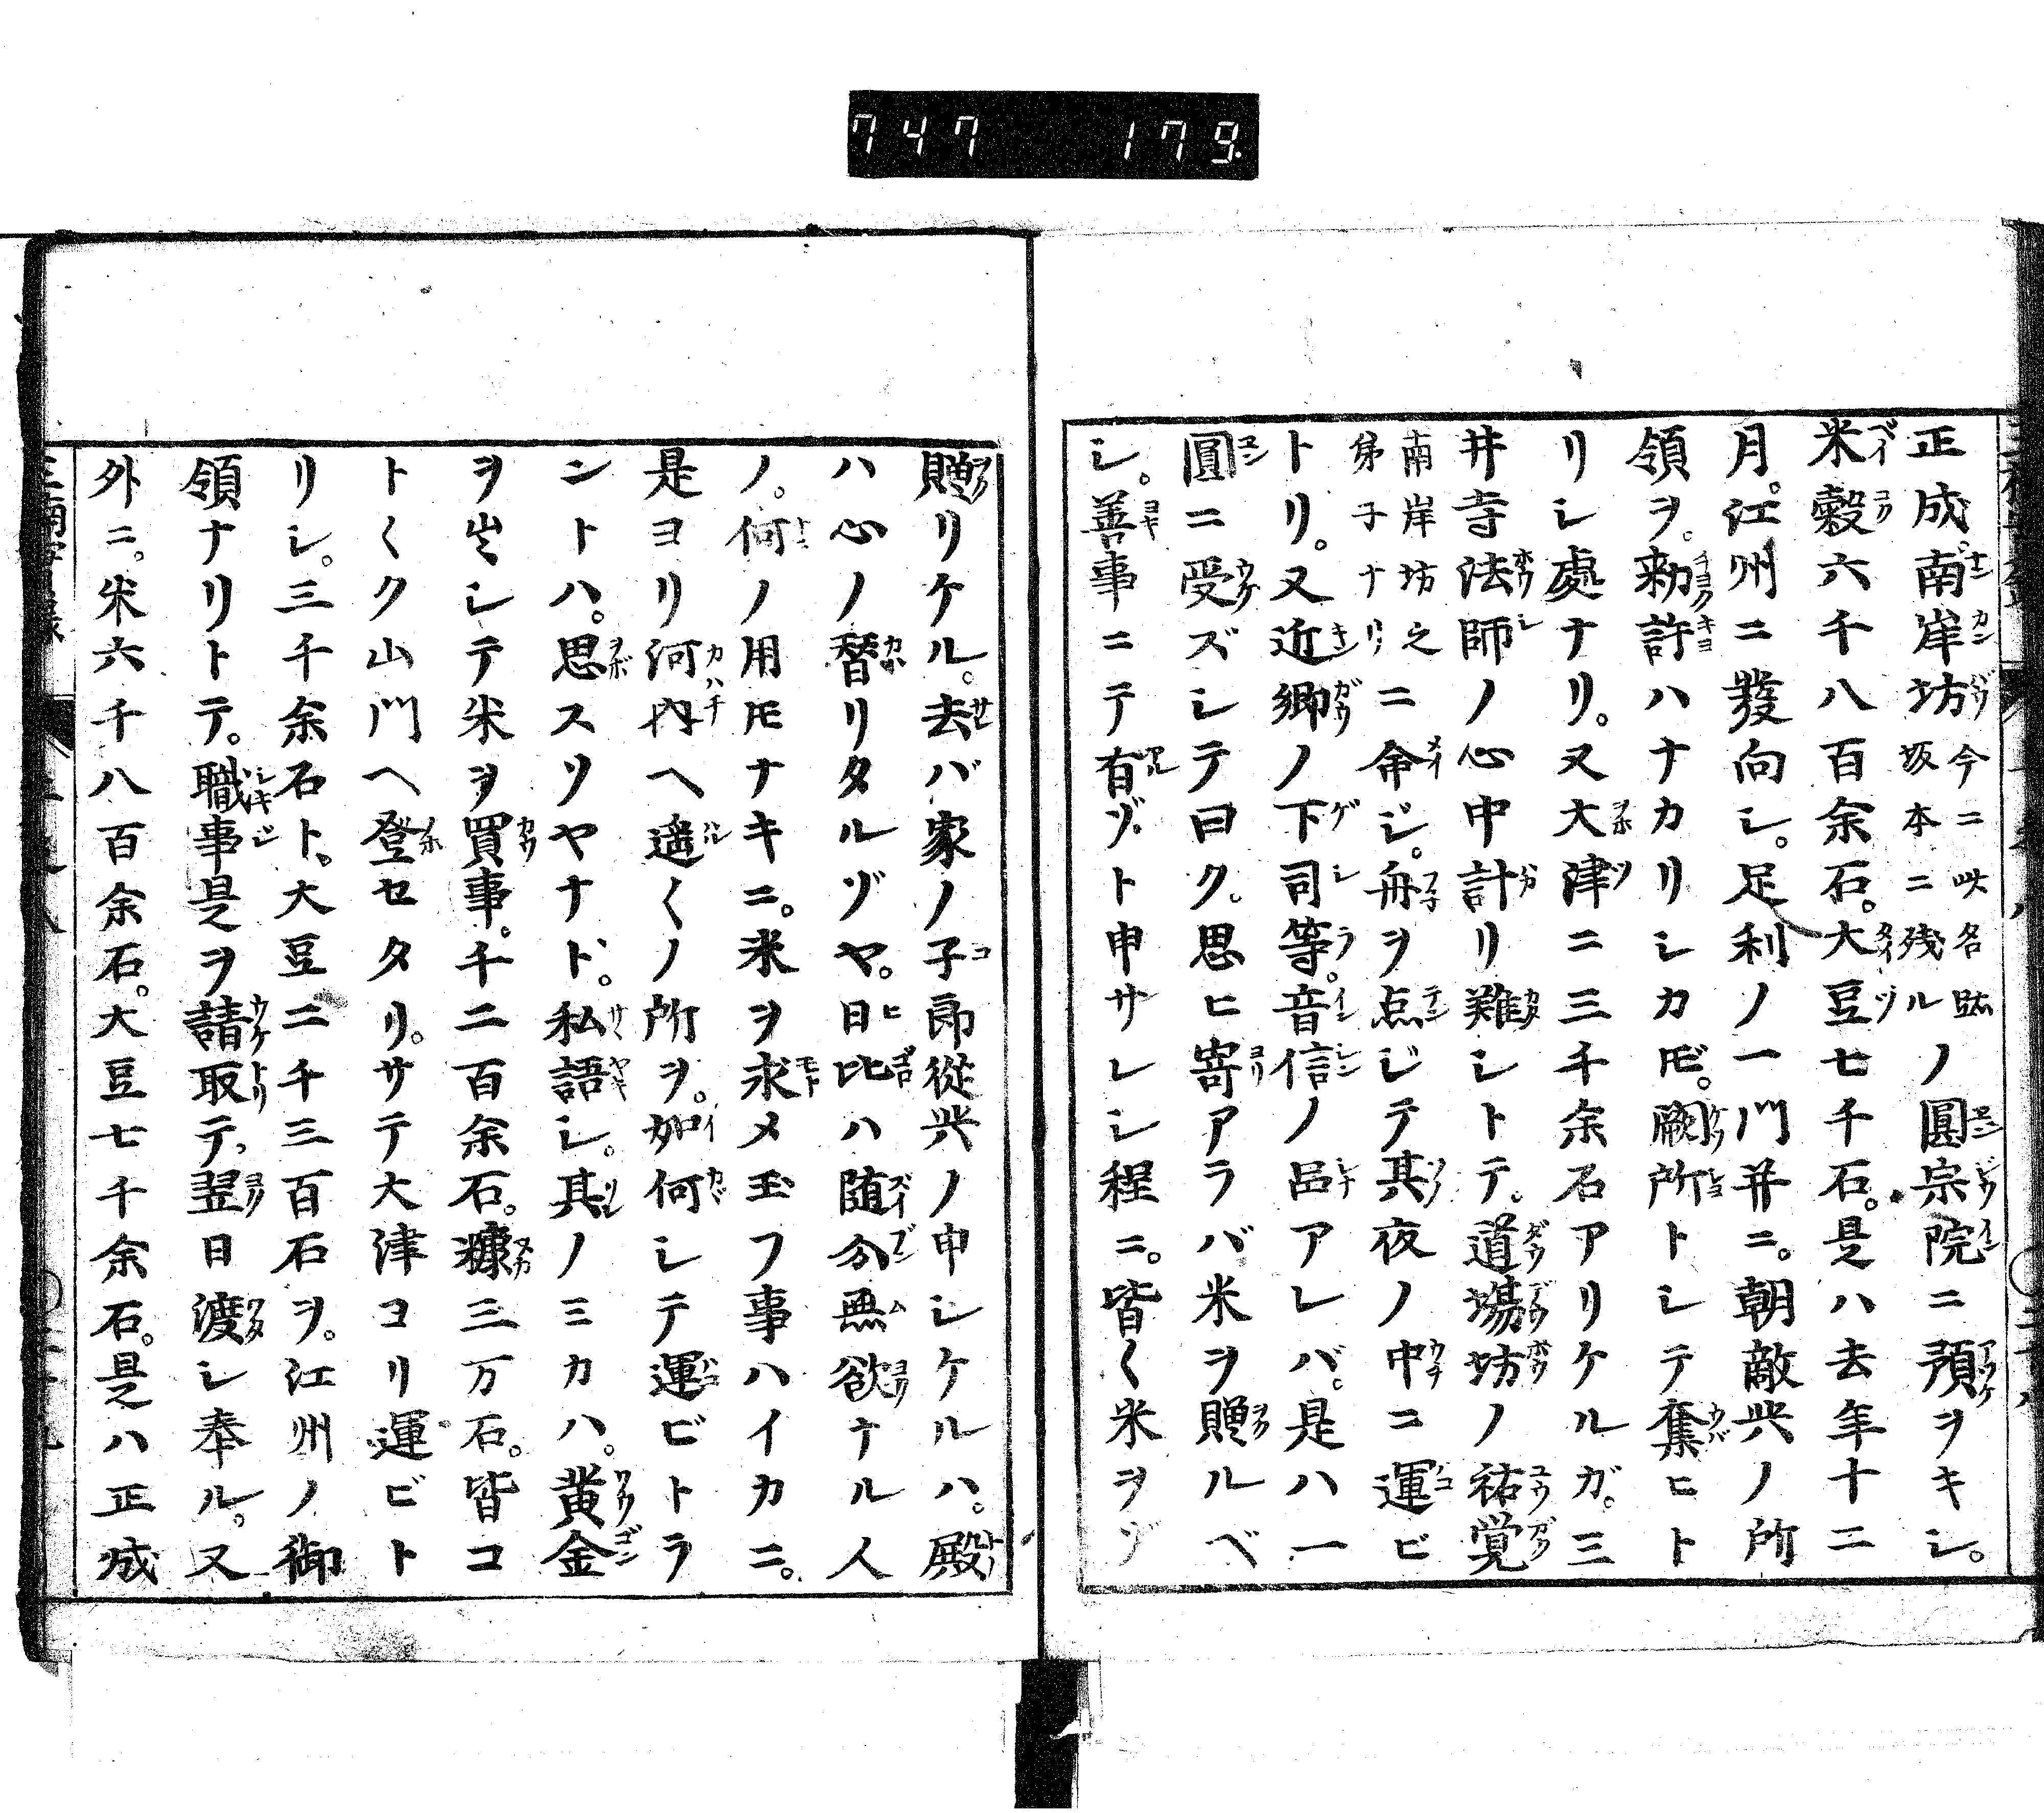 747 179.
正成。南岸坊今ニ此名跡坂本ニ残ルノ圓宗院ニ預ヲキシ。
米穀六千八百余石。大豆七千石。是ハ去年十二
月。江州ニ發向シ。足利ノ一門并ニ。朝敵共ノ所
領ヲ。勅許ハナカリシカ𪜈。闕所トシテ奪ヒト
リシ處ナリ。又大津ニ三千余石アリケルガ。三
井寺法師ノ心中計リ難シトテ。道場坊ノ祐覚
南岸坊之弟子ナリニ命ジ。舟ヲ点ジテ其夜ノ中ニ運ビ
トリ。又近郷ノ下司等。音信ノ呂アレバ。是ハ一
圓ニ受ズシテ曰ク。思ヒ寄アラバ米ヲ贈ルベ
シ。善事ニテ有ゾト申サレシ程ニ。皆〱米ヲゾ
贈リケル。去バ家ノ子郎従共ノ申シケルハ。殿
ハ心ノ替リタルゾヤ。日比ハ随分無欲ナル人
ノ。何ノ用𪜈ナキニ。米ヲ求メ玉フ事ハイカニ。
是ヨリ河内ヘ遥〱ノ所ヲ。如何シテ運ビトラ
ントハ。思スソヤナド。私語シ。其ノミカハ。黄金
ヲ出シテ米ヲ買事。千二百余石。糠三万石。皆コ
ト〱ク山門ヘ登セタリ。サテ大津コリ運ビト
リシ。三千余石ト。大豆二千三百石ヲ。江州ノ御
領ナリトテ。職事是ヲ請取テ。翌日渡シ奉ル。又
外ニ。米六千八百余石。大豆七千余石。是ハ正成